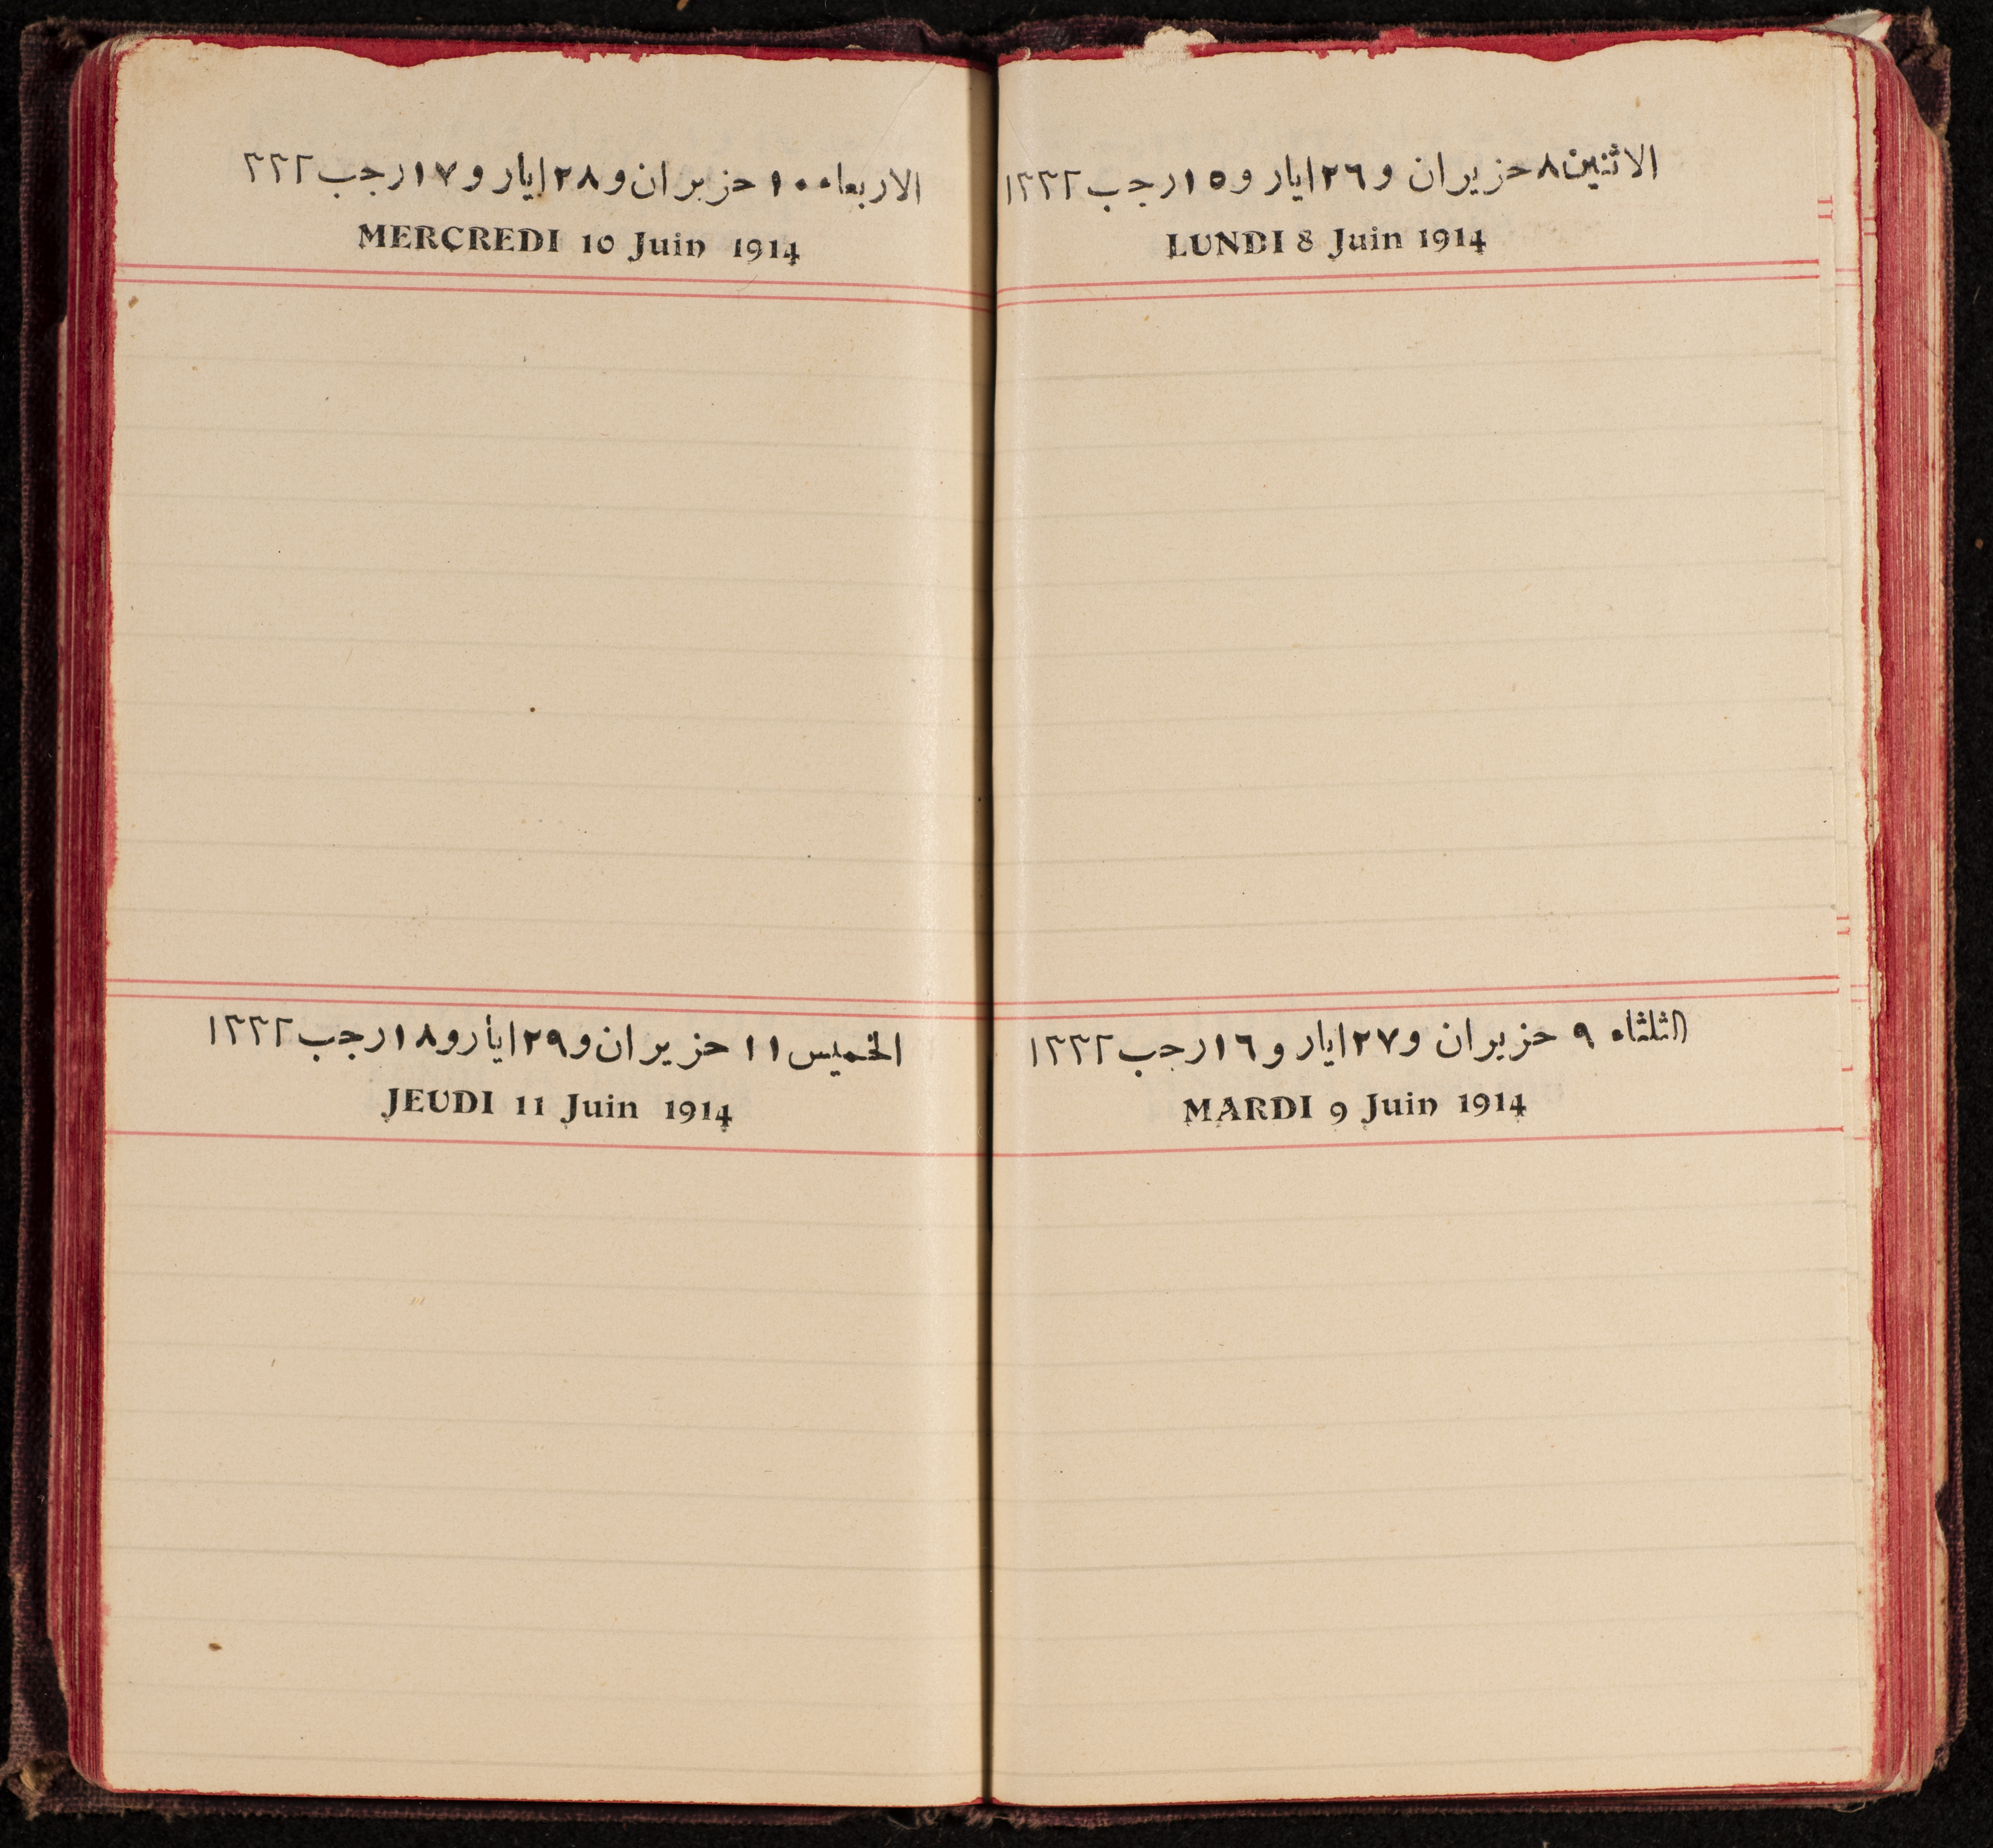 الاثنين ٨ حزيران و ٢٦ ايار و ١٥ رجب ١٣٣٢
LUNDI 8 Juin 1914
الثلثاء ٩ حزيران و ٢٧ ايار و ١٦ رجب ١٣٣٢
MARDI 9 Juin 1914
الاربعاء ١٠ حزيران و ٢٨ ايار و ١٧ رجب ٣٣٢
MERCREDI 10 Juin 1914
الخميس ١١ حزيران و ٢٩ ايار و ١٨ رجب ١٣٣٢
JEUDI 11 Juin 1914